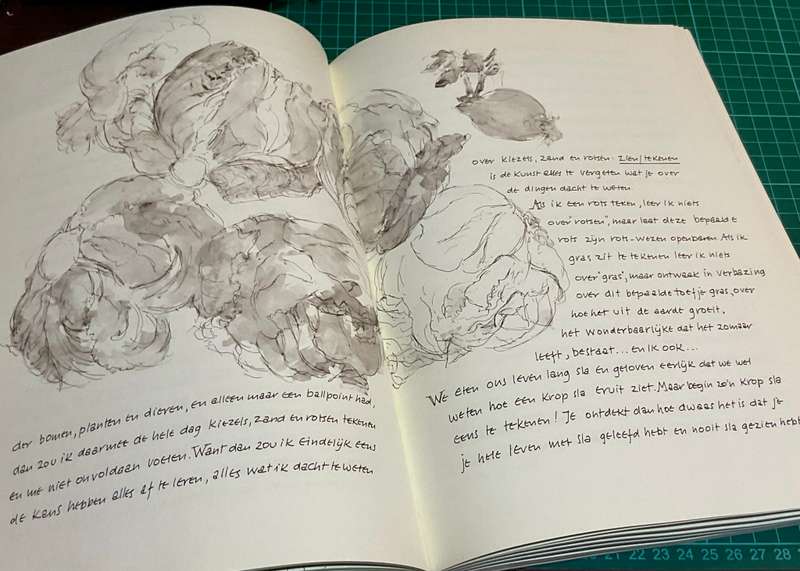 der bomen, planten en dieren, en alleen maar een ballpoint had,
dan zou ik daarmee de hele dag kiezels, zand en rotsen tekenen
en me niet onvoldaan voelen. Want dan zou ik eindelijk eens
de kans hebben alles af te leren, alles wat ik dacht te weten
over kiezels, zand en rotsen: zien/tekenen
is de kunst alles te vergeten wat je over
de dingen dacht te weten.
Als ik een rots teken, leer ik niets
over "rotsen", maar laat deze bepaalde
rots zijn rots-wezen openbaren. Als ik
gras zit te tekenen leer ik niets
over "gras", maar ontwaak in verbazing
over dit bepaalde toefje gras, over
hoe het uit de aarde groeit,
het wonderbaarlijke dat het zomaar
leeft, bestaat... en ik ook...
We eten ons leven lang sla en geloven eerlijk dat we wel
weten hoe een krop sla eruit ziet. Maar begin zo'n krop sla
eens te tekenen! Je ontdekt dan hoe dwaas het is dat je
je hele leven met sla geleefd hebt en nooit sla gezien hebt
20 21 22 23 24 25 26 27 28